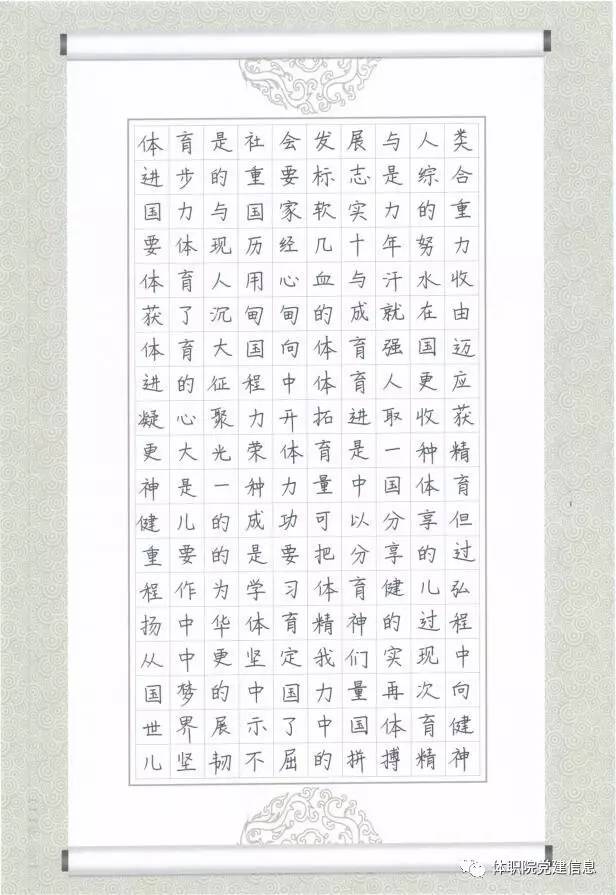 体育是社会发展与人类
进步的重要标志是综合
国力与国家软实力的重
要体现历经几十年努力
体育人用心血与汗水收
获了沉甸甸的成就在由
体育大国向体育强国迈
进的征程中体育人更应
凝心聚力开拓进取收获
更大光荣体育是一种精
神是一种力量中国体育
健儿的成功可以分享但
重要的是要把分享的过
程作为学习体育健儿弘
扬中华体育精神的过程
从中更坚定我们实现中
国梦的中国力量再次向
世界展示了中国体育健
儿坚韧不屈的拼搏精神
体职院党建信息